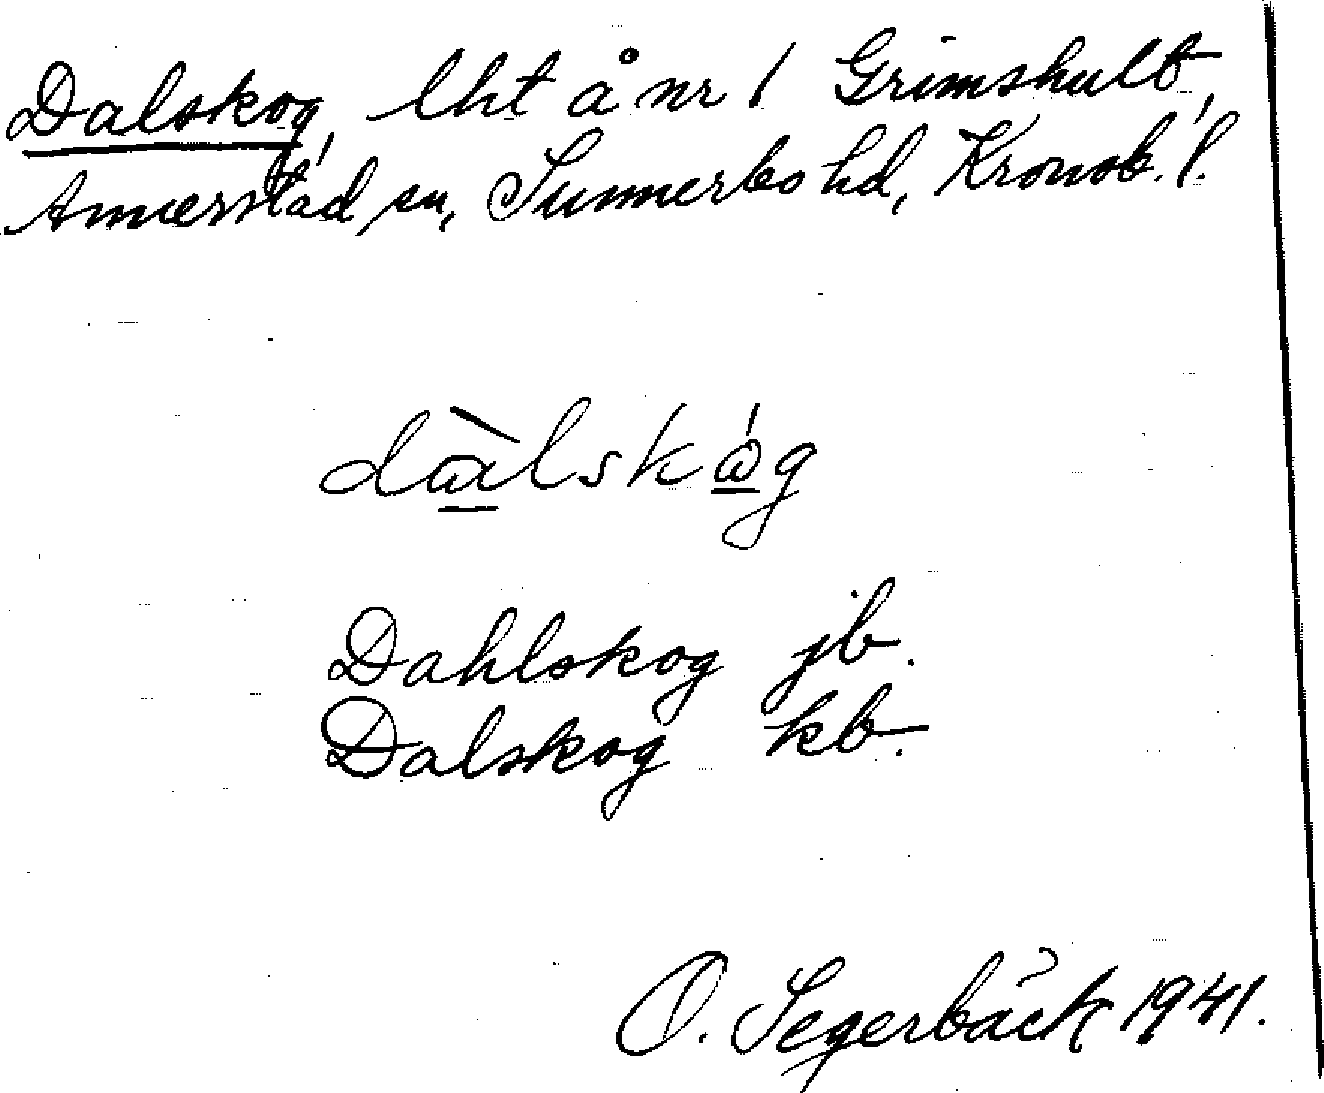 Dalskog, lht å nr 1 Grimshult,
Annerstad sn, Sunnerbo hd, Kronob. l.
dàlskǻg
Dahlskog jb.
Dalskog kb.
O. Segerbäck 1941.